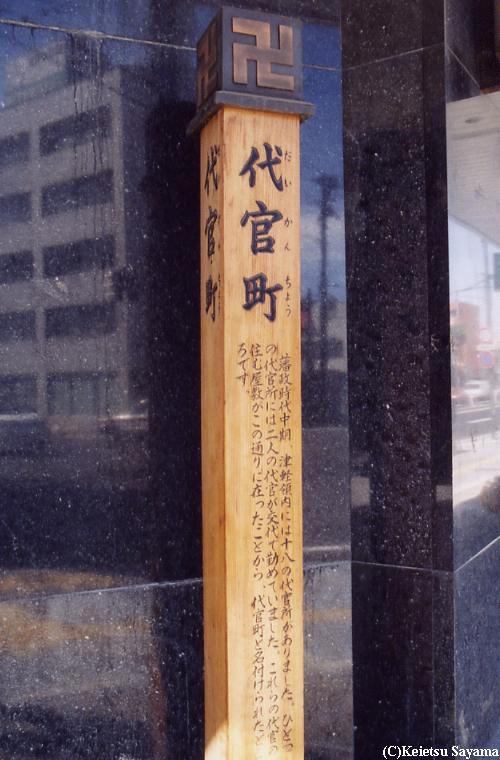 代官町
だいかんちょう
藩政時代中期、津軽領内には十八の代官所がありました。ひとつ
の代官所には二人の代官が交代で勤めていました。これらの代官の
住む屋敷がこの通りに在ったことから、代官町と名付けられたとこ
ろです。
代官町
(C)Keietsu Sayama